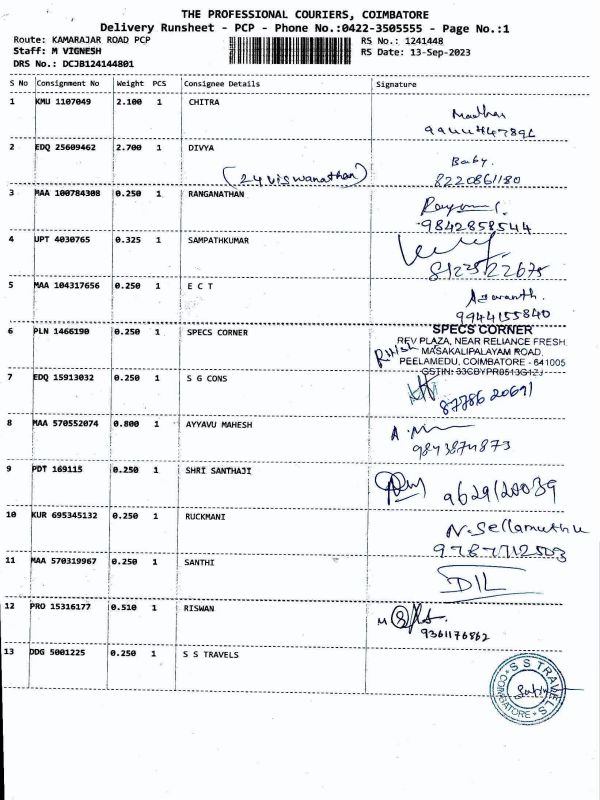 THE PROFESSIONAL COURIERS, COIMBATORE
Delivery Runsheet - PCP - Phone No.:0422-3505555 - Page No.:1
Route: KAMARAJAR ROAD PCP RS No.: 1241448
Staff: M VIGNESH RS Date: 13-Sep-2023
DRS No.: DCJB124144801
S No Consignment No Weight PCS Consignee Details Signature
1 KMU 1107049 2.100 1 CHITRA
2 EDQ 25609462 2.700 1 DIVYA Baby.
(24 viswanathan) 8220861180
3 MAA 100784308 0.250 1 RANGANATHAN
9842858544
4 UPT 4030765 0.325 1 SAMPATHKUMAR
8122522675
5 MAA 104317656 0.250 1 E C T Aswanth.
9944155840
6 PLN 1466190 0.250 1 SPECS CORNER SPECS CORNER
REV PLAZA, NEAR RELIANCE FRESH
MASAKALIPALAYAM ROAD,
PEELAMEDU, COIMBATORE - 641005
GSTIN: 33CBYPR8513G1ZJ
7 EDQ 15913032 0.250 1 S G CONS
87786 20691
8 MAA 570552074 0.800 1 AYYAVU MAHESH
9843874873
9 PDT 169115 0.250 1 SHRI SANTHAJI
10 KUR 695345132 0.250 1 RUCKMANI N. Sellamuthu
11 MAA 570319967 0.250 1 SANTHI DIL
12 PRO 15316177 0.510 1 RISWAN
9361176862
13 DDG 5001225 0.250 1 S S TRAVELS
S S TRAVELS
COIMBATORE